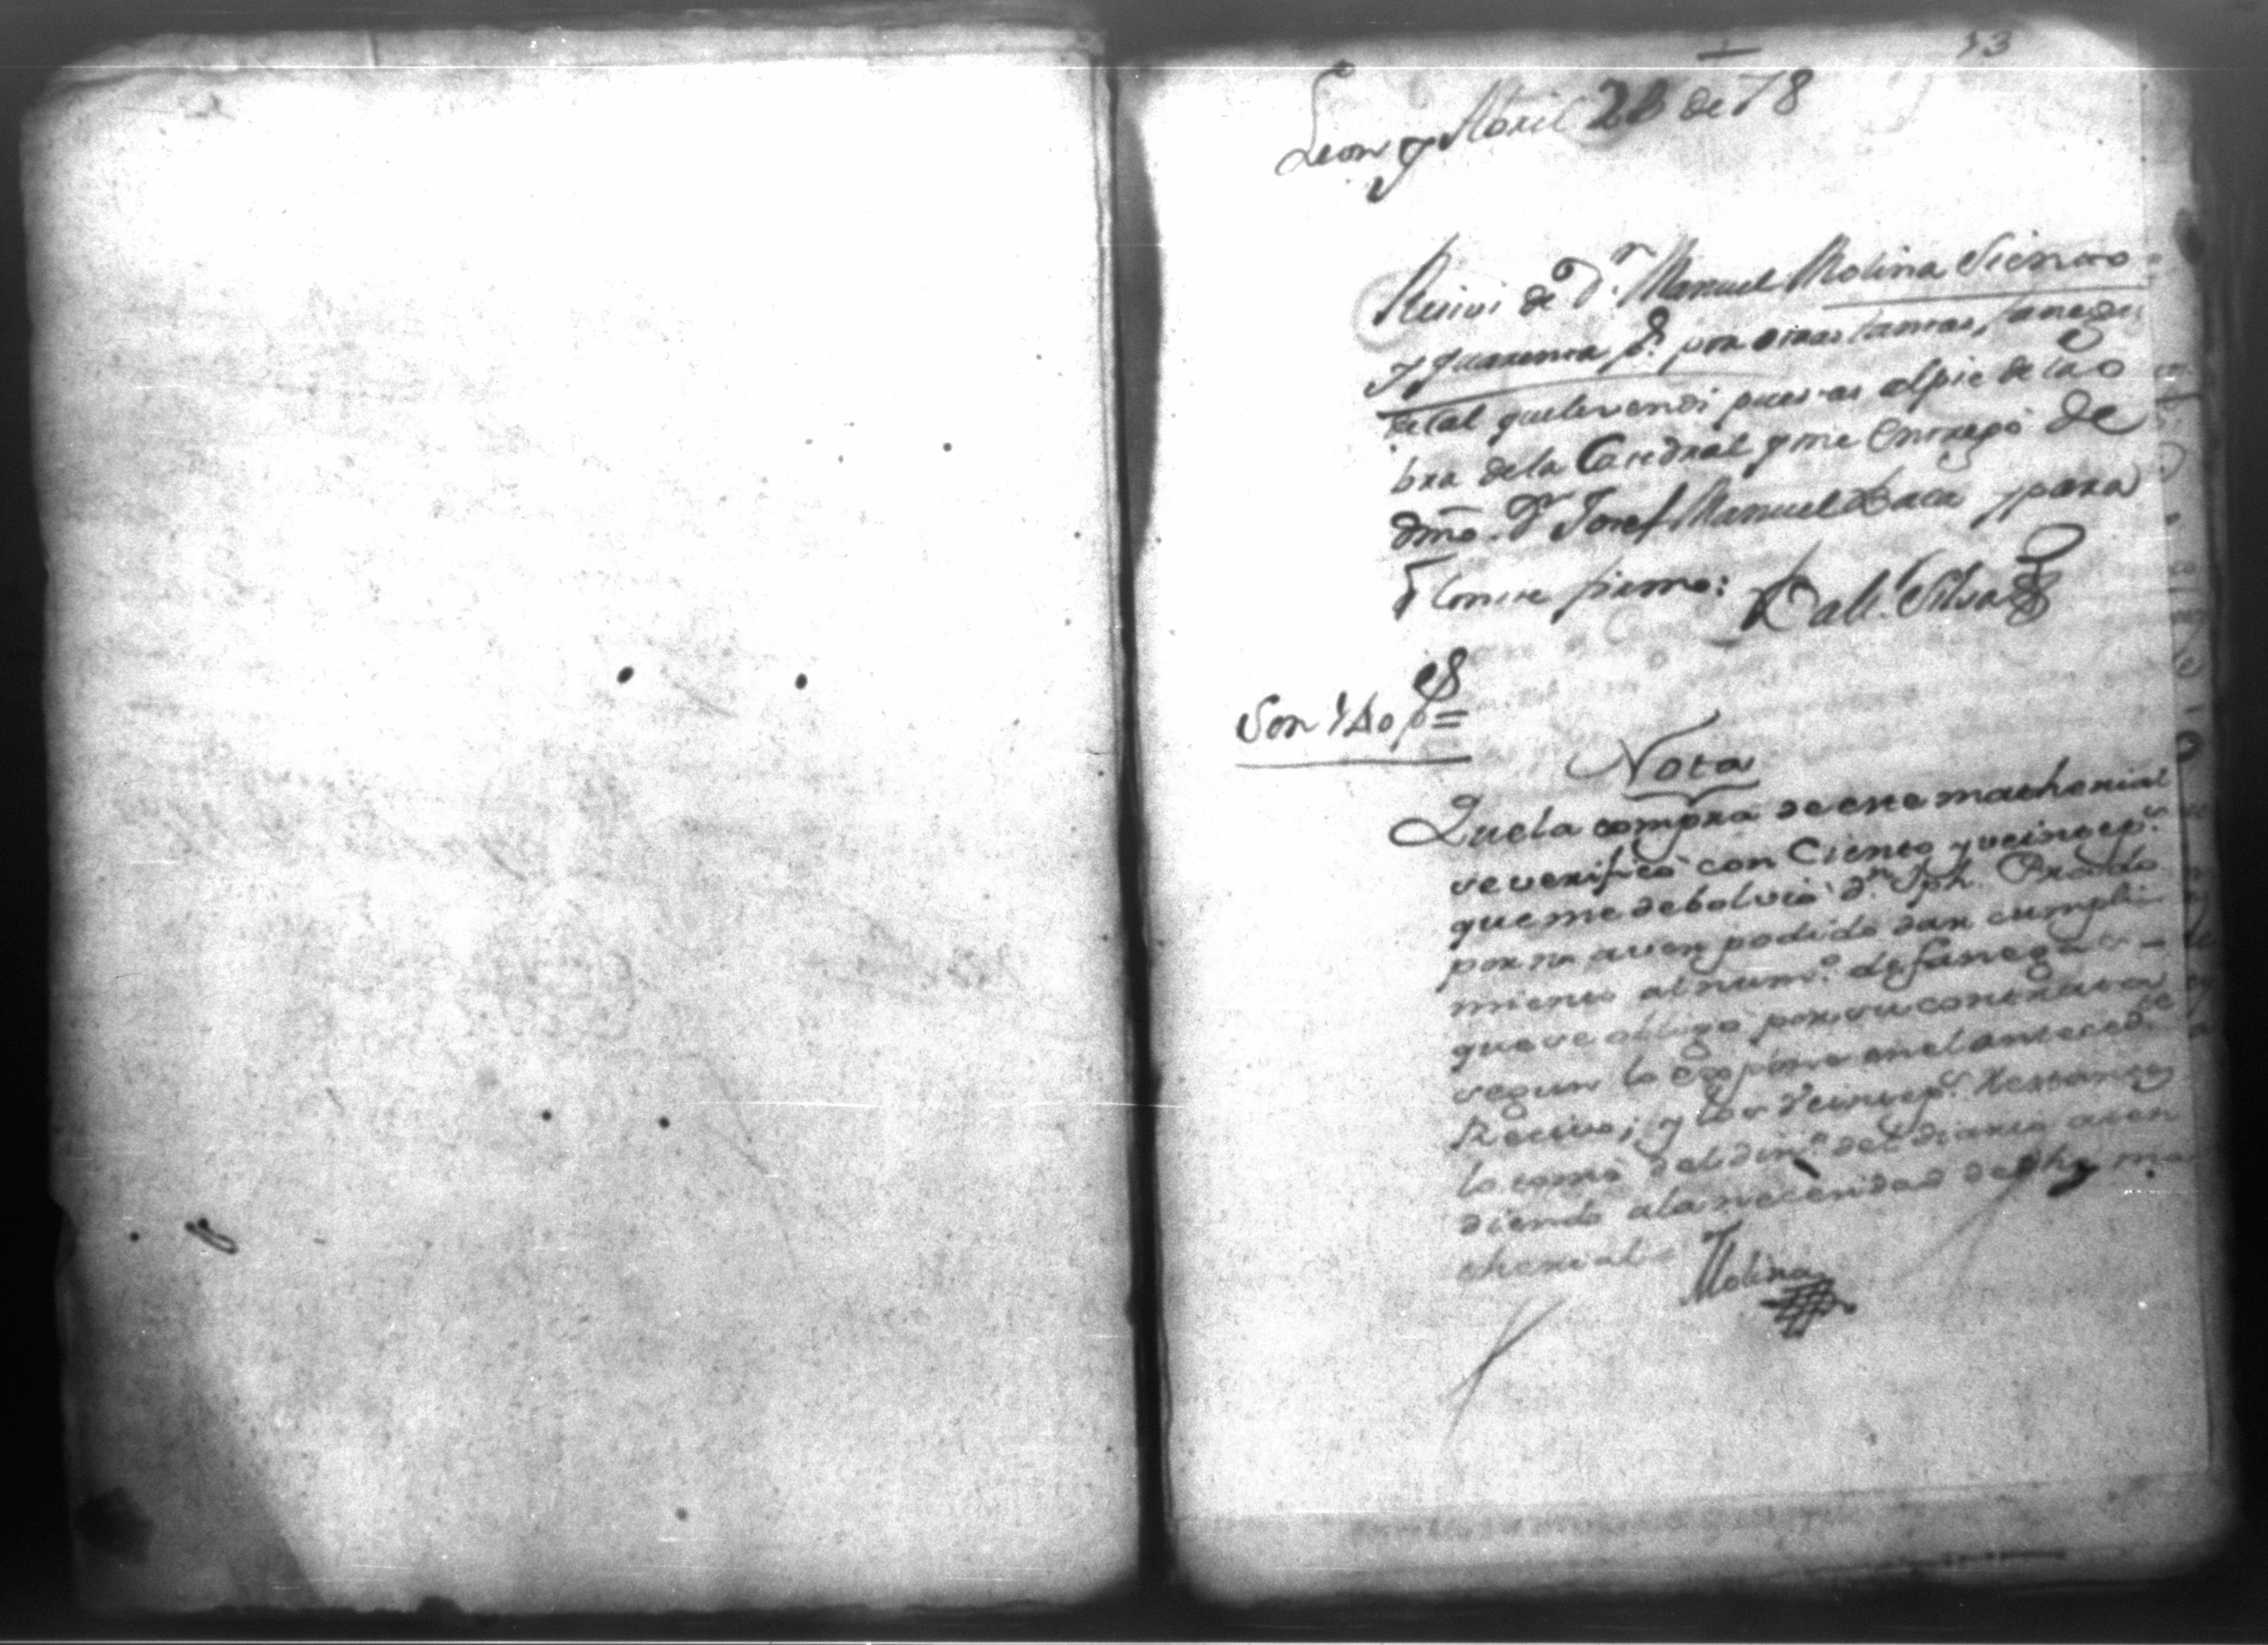 13
Leon y Abril 26 de 78
Reciví de Dn. Manuel Molina Siento
y quarenta ps. por otras tantas fanegas
de Cal que le vendi puestas al pie de la o
bra de la Catedral y me entregó de
dmo. Dn. Josef Manuel Baca y para
q. conste firmo: Balt. Silva
Son 140 ps =
Nota
Que la compra de este matherial
se verificó con Ciento y veinte ps.
que me debolvió dn. Jph. Prado
por no aver podido dar cumpli
miento al num.o de fanegas
que se obligo por su contrata
segun lo expone en el anteced.te
Recivo; y los Veinte ps. restantes
lo tomó del din.o del diario aten
diendo a la necesidad de dho ma
therial =
Molina